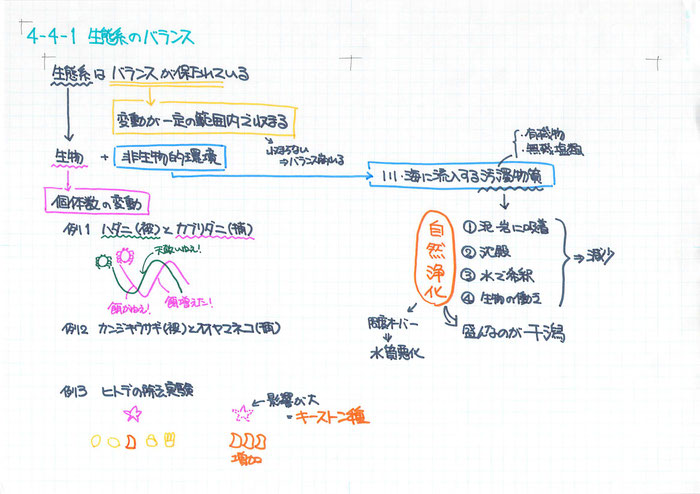 4-4-1 生態系のバランス
生態系は バランスが保たれている
変動が一定の範囲内に収まる
収まらない
⇒バランス崩れる
生物 + 非生物的環境
個体数の変動
例1 ハダニ(被)とカブリダニ(捕)
天敵いねえ!
餌がねえ!
餌増えた!
例2 カンジキウサギ(被)とオオヤマネコ(捕)
例3 ヒトデの除去実験
影響が大
・キーストン種
増加
・有機物
・無機塩類
川・海に流入する汚濁物質
自然浄化
①泥・岩に吸着
②沈殿
③水で希釈
④生物の働き
⇒減少
限度オーバー
水質悪化
盛んなのが干潟